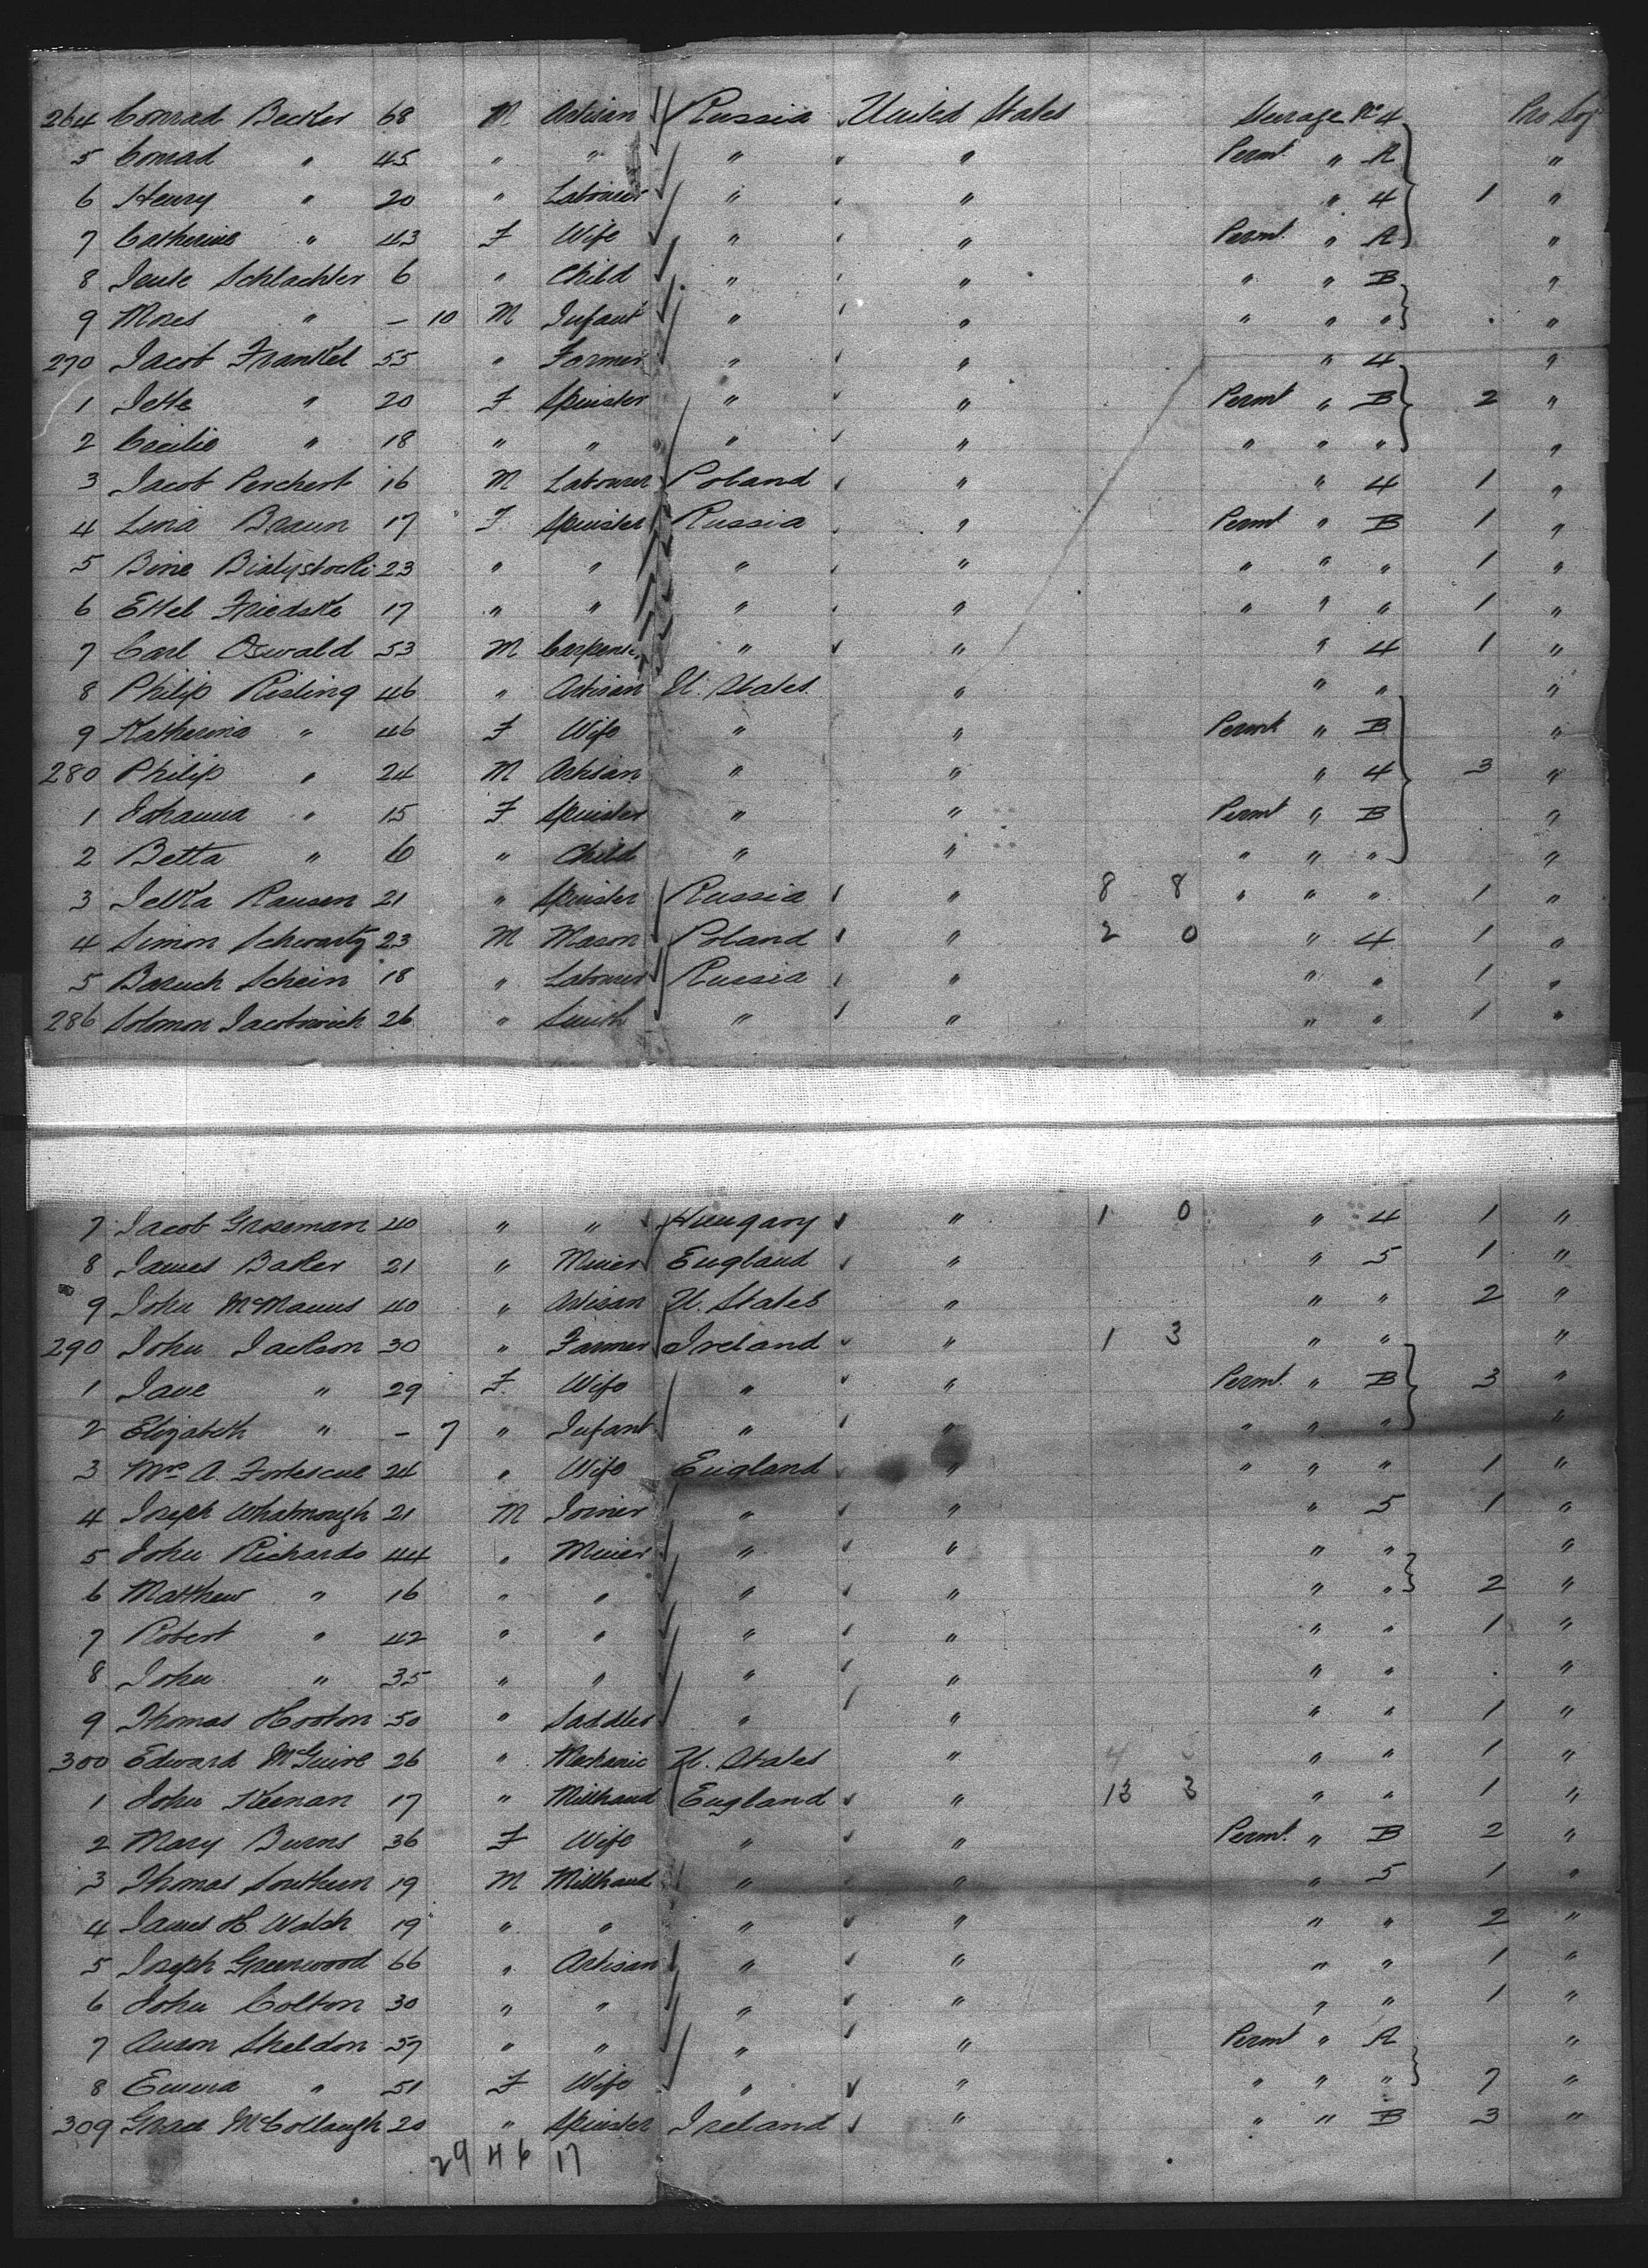 264 Conrad Becker 68 M Artisan Russia United States Steerage No 4
5 Conrad " 45 " " " " Permt. " A "
6 Henry " 20 " Labourer " " " 4 1 "
7 Catherine " 43 F Wife " " Permt. " A "
8 Schlachter 6 " Child " " " " B "
9 Moses " – 10 M Infant " " " " " "
270 Jacob Frankel 55 " Farmer " " " 4 "
1 Jette " 20 F Spinster " " Permt " B 2 "
2 Cecilie " 18 " " " " " " " "
3 Jacob 16 M Labourer Poland " " 4 1 "
4 Lina Braun 17 F Spinster Russia " Permt " B 1 "
5 Bine Bialystocki 23 " " " " " " " 1 "
6 Ettel 17 " " " " " " " 1 "
7 Carl Oswald 53 M Carpenter " " " 4 1 "
8 Philip Risling 46 " Artisan U. States " " " "
9 Katherina " 46 F Wife " " Permt " B "
280 Philip " 24 M Artisan " " " 4 3 "
1 Johanna " 15 F Spinster " " Permt " B "
2 Betta " 6 " Child " " " " " "
3 Ransen 21 " Spinster Russia " 8 8 " " " 1 "
4 Simon Schwartz 23 M Mason Poland " 2 0 " 4 1 "
5 Baruch Schein 18 " Labourer Russia " " " 1 "
286 Solomon 26 " Smith " " " " 1 "
7 Jacob Groseman 40 " " Hungary " 1 0 " 4 1 "
8 James Baker 21 " Miner England " " 5 1 "
9 John McManus 40 " Artisan U. States " " " 2 "
290 John Jackson 30 " Farmer Ireland " 1 3 " " "
1 Jane " 29 F Wife " " Permt. " B 3 "
2 Elizabeth " – 7 " Infant " " " " " "
3 Mrs A. Fortescue 24 " Wife England " " " " 1 "
4 Joseph Whatmough 21 M Joiner " " " 5 1 "
5 John Richards 44 " Miner " " " " "
6 Matthew " 16 " " " " " " 2 "
7 Robert " 42 " " " " " " 1 "
8 John " 35 " " " " " " "
9 Thomas Hooton 50 " Saddler " " " " 1 "
300 Edward McGuire 26 " Mechanic U. States " " " 1 "
1 John Keenan 17 " Millhand England " 13 3 " " 1 "
2 Mary Burns 36 F Wife " " Permt. " B 2 "
3 Thomas Southern 19 M Millhand " " " 5 1 "
4 James H. Walsh 19 " " " " " " 2 "
5 Joseph Greenwood 66 " Artisan " " " " 1 "
6 John Colton 30 " " " " " " 1 "
7 Anson Sheldon 59 " " " " Permt " A "
8 Emma " 51 F Wife " " " " " 7 "
309 Grace McCollaugh 20 " Spinster Ireland " " " B 3 "
29 46 17